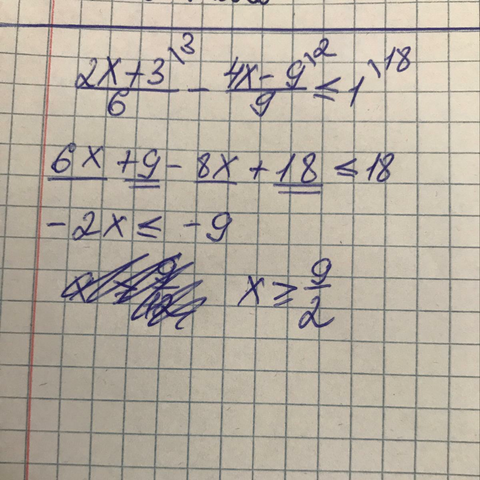 (2x+3)/6 ^\3 - (4x-9)/9 ^\2 ≤ 1 ^\18
6x + 9 - 8x + 18 ≤ 18
-2x ≤ -9
x ≥ 9/2